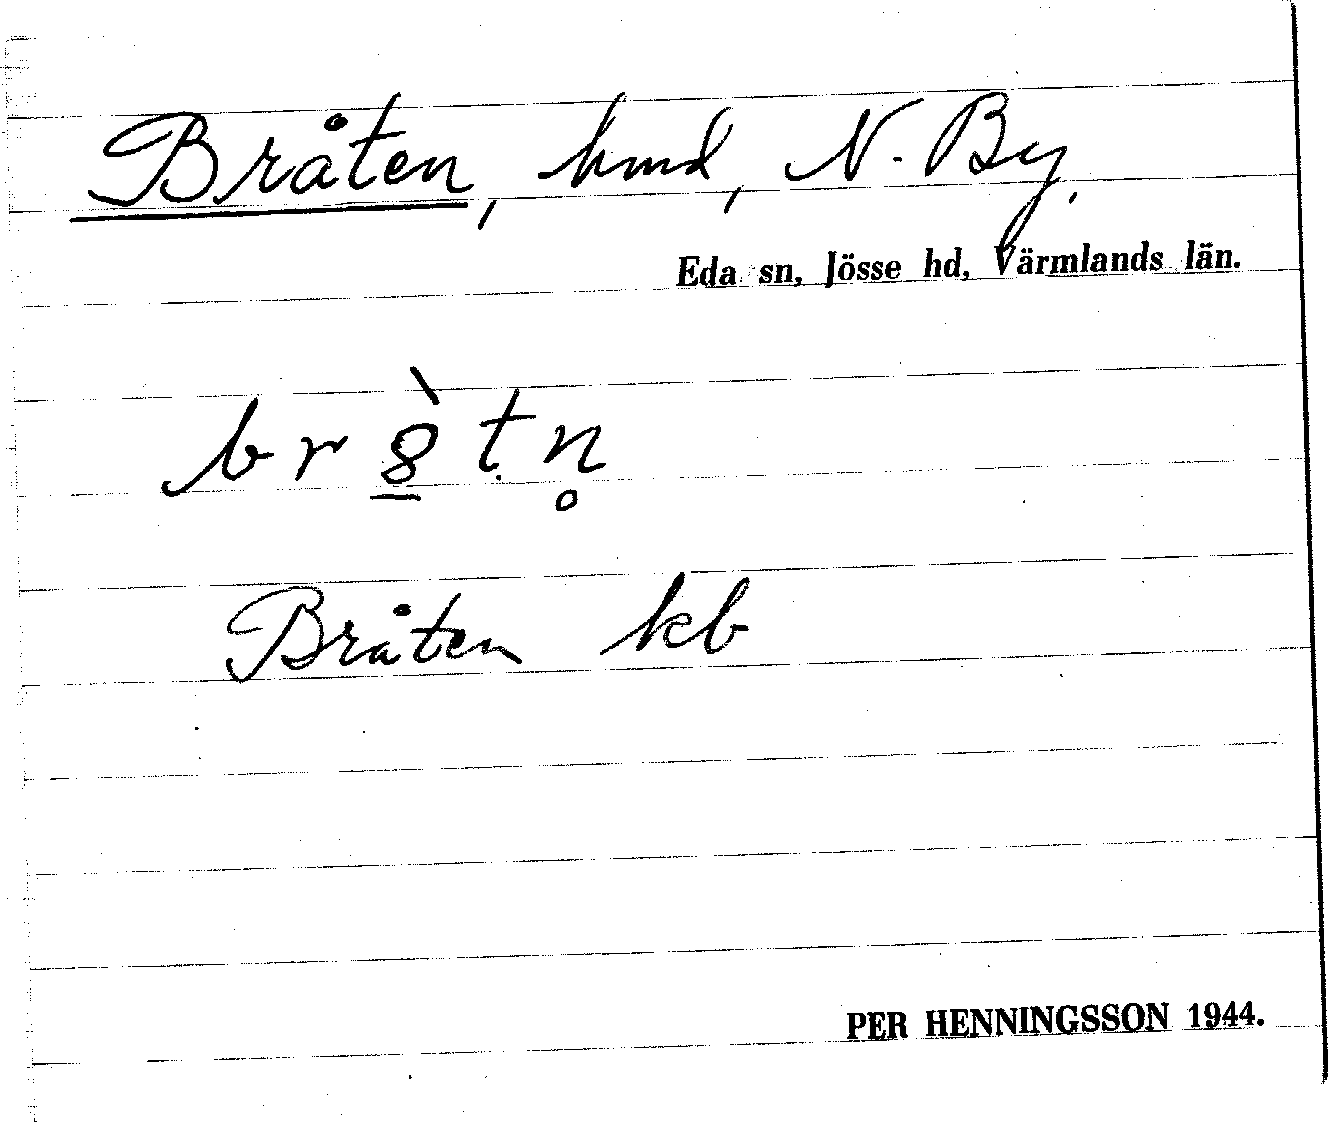 Bråten, hmd, N. By,
Eda sn, Jösse hd, Värmlands län.
br8̲̀tṇ̥
Bråten kb
PER HENNINGSSON 1944.